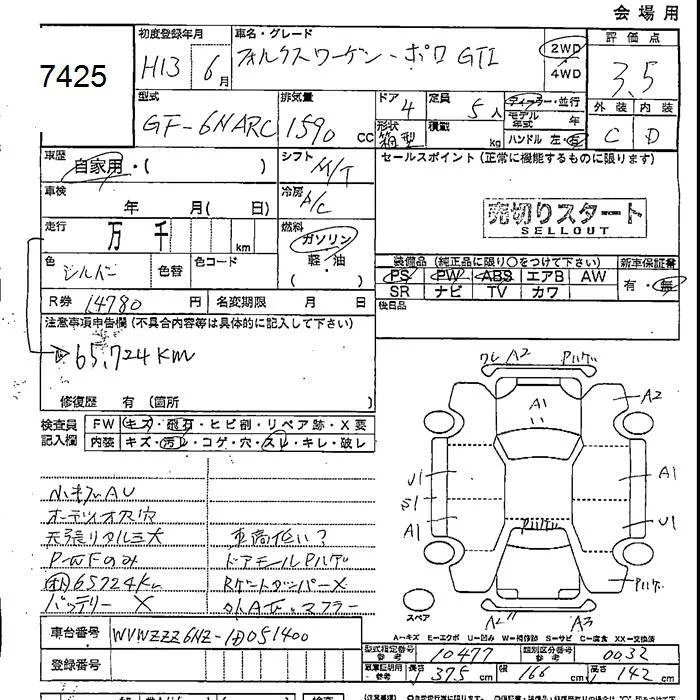 会場用
7425
初度登録年月 車名・グレード 評価点
H13 6月 フォルクスワーゲン・ポロ GTI 2WD 3.5
4WD
型式 排気量 ドア 定員 ディーラー・並行 外装 内装
GF-6NARC 1590 cc 4 5人 モデル年式 年 C D
形状 箱型 積載 kg ハンドル 左・右
車歴 シフト セールスポイント (正常に機能するものに限ります)
自家用・( ) M/T
車検 冷房
年 月( 日) A/C 売切りスタート
SELLOUT
走行 燃料
万 千 km ガソリン
色 色替 色コード 軽・油 装備品 (純正品に限り○をつけて下さい) 新車保証書
シルバー ( ) PS PW ABS エアB AW 有・無
R券 14780 円 名変期限 月 日 SR ナビ TV カワ
注意事項申告欄 (不具合内容等は具体的に記入して下さい) 後日品
65,724KM
修復歴 有 (箇所 )
検査員 FW キズ・飛石・ヒビ割・リペア跡・X要
記入欄 内装 キズ・汚レ・コゲ・穴・スレ・キレ・破レ
ワレ A2 Pハゲ
A2
A1
小キズAU
U1 A1
オーディオ穴 S1
天張りタルミ大 車高低い? A1 Pハゲ U1
P-WFのみ ドアモールPハゲ
65724Km Rゲートダンパー× Pハゲ
バッテリー × 社外AW・マフラー
スペア A2 A3
A=キズ E=エクボ U=凹み W=補修跡 S=サビ C=腐食 XX=交換済
車台番号 WVWZZZ6NZ-1D051400
型式指定番号 参考 10477 類別区分番号 参考 0032
登録番号 車庫証明用 参考 長さ 375cm 幅 166cm 高さ 142cm